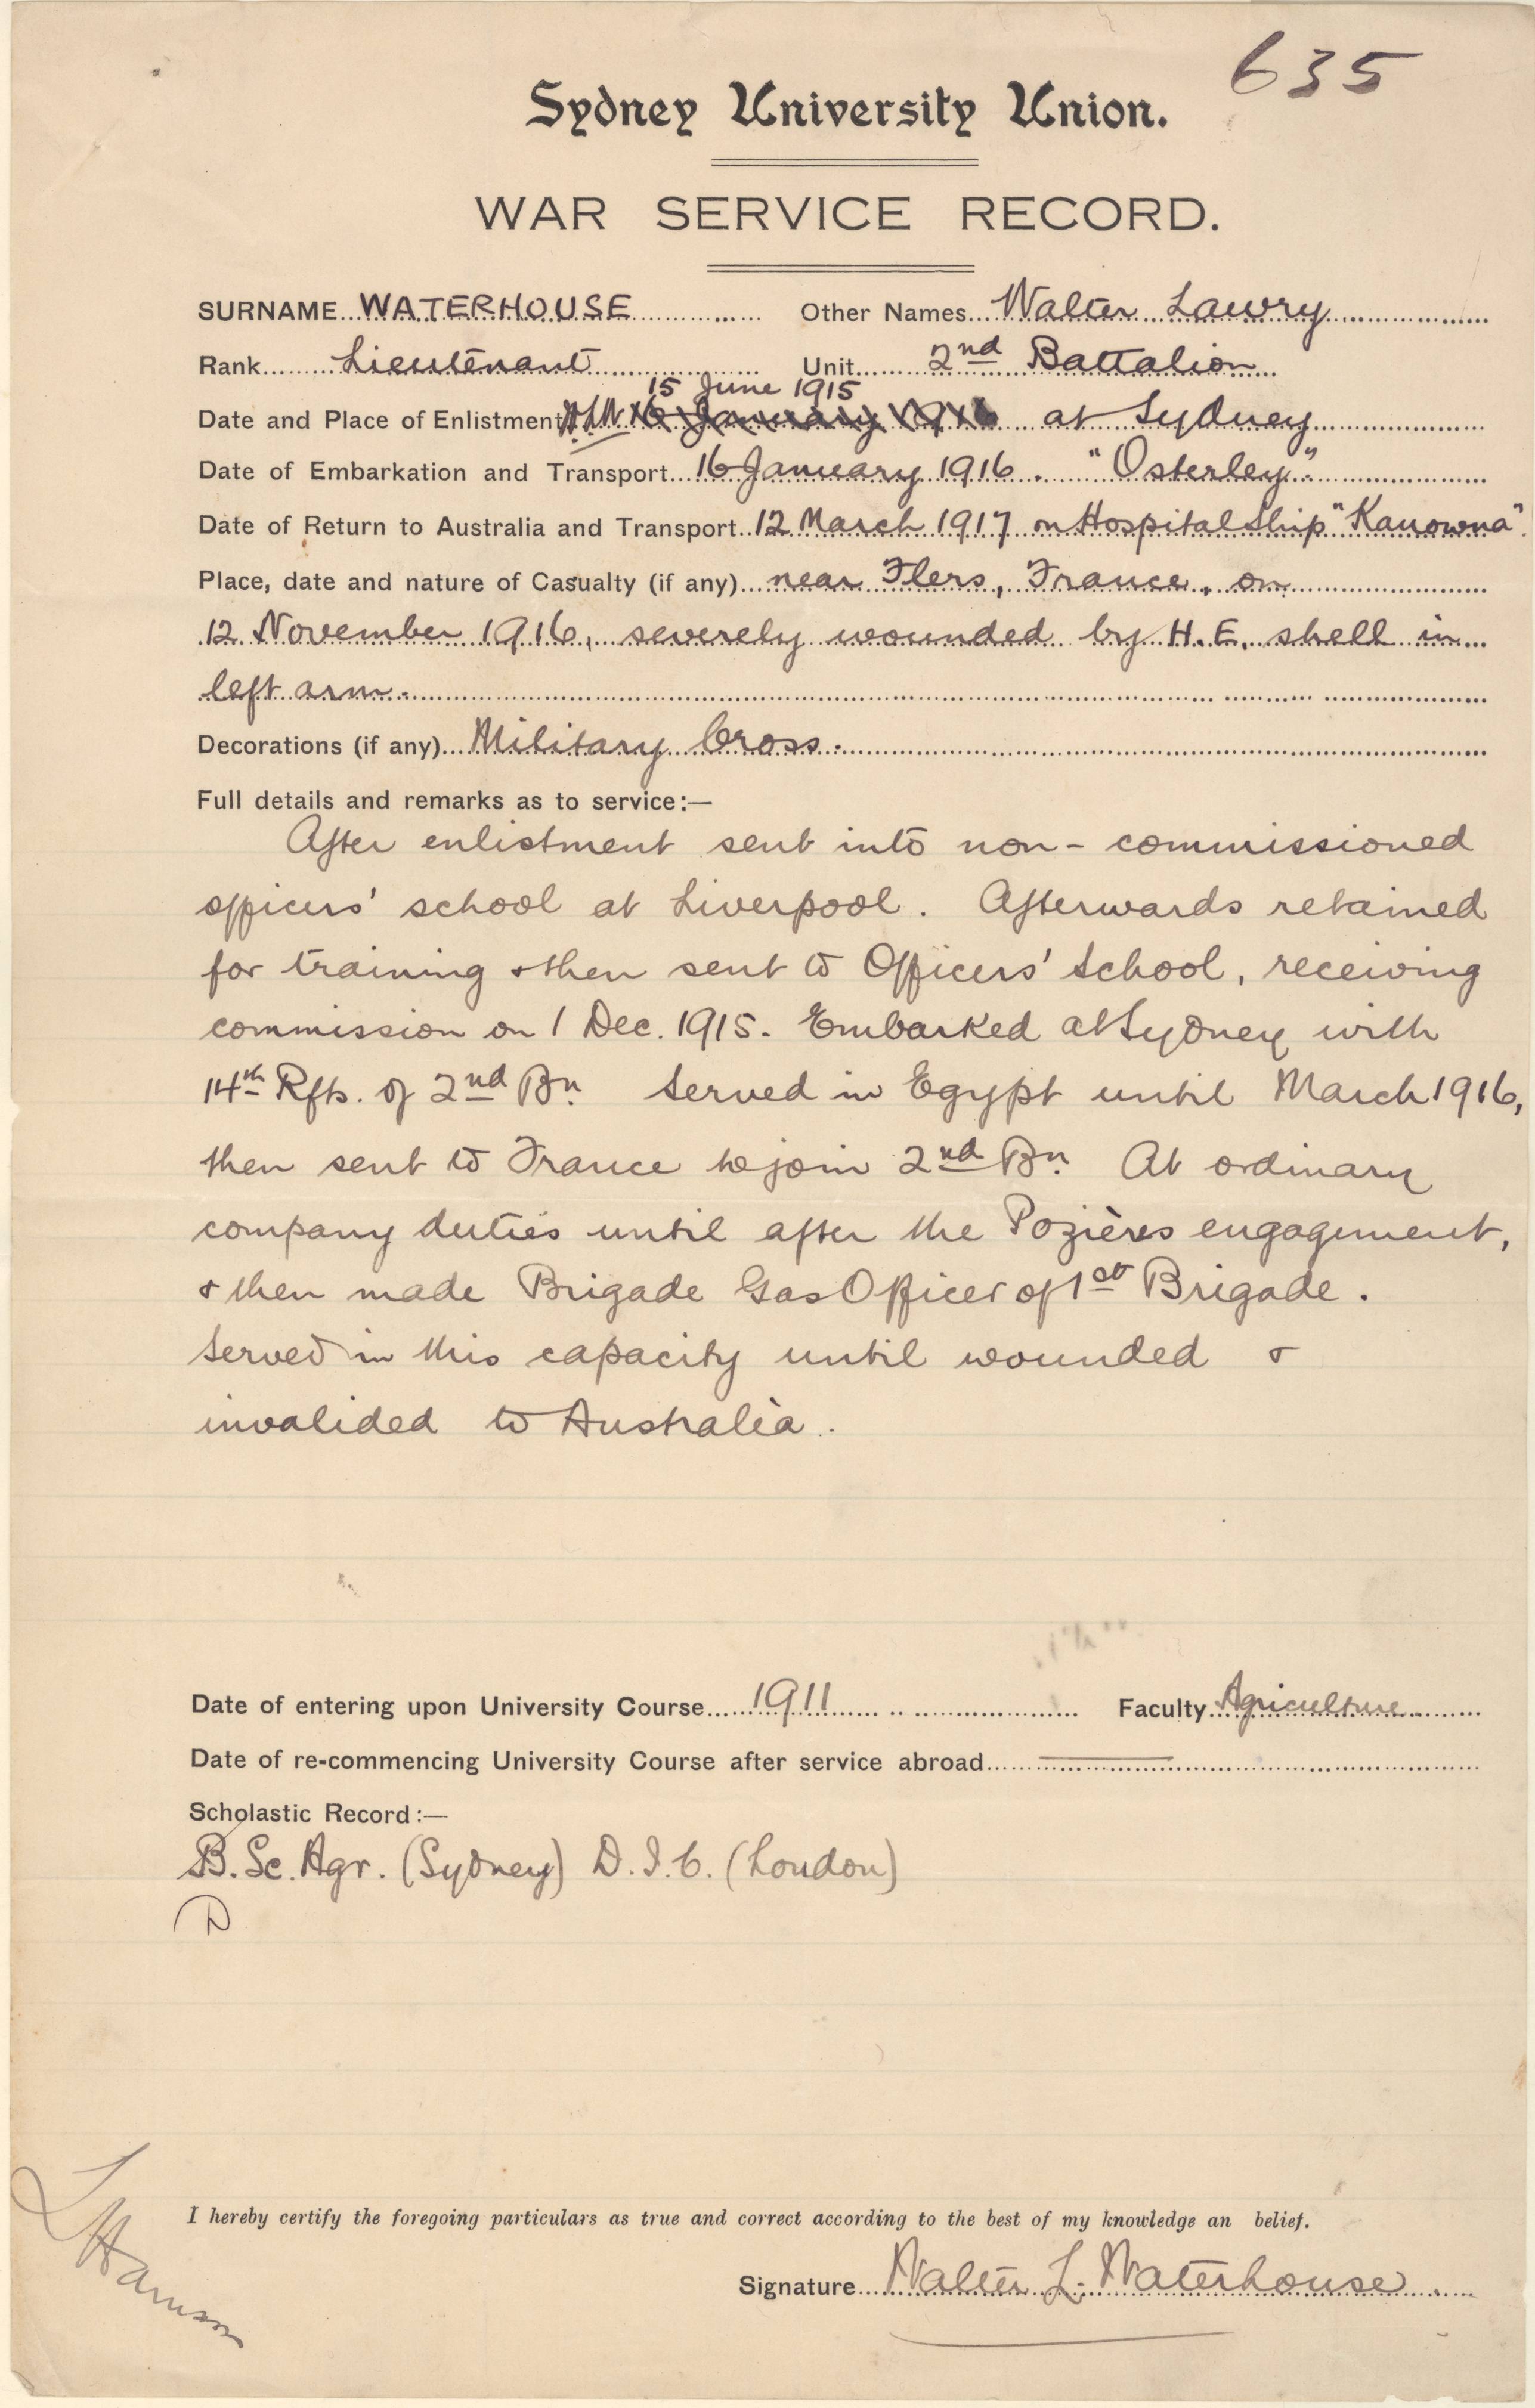 635
Sydney University Union.
WAR SERVICE RECORD.
SURNAME WATERHOUSE Other Names Walter Lawry
Rank Lieutenant Unit 2nd Battalion
15 June 1915
Date and Place of Enlistment 16 January 1916 at Sydney
Date of Embarkation and Transport 16 January 1916. "Osterley".
Date of Return to Australia and Transport 12 March 1917 on Hospital Ship "Kanowna".
Place, date and nature of Casualty (if any) near Flers, France, on
12 November 1916, severely wounded by H.E. shell in
left arm.
Decorations (if any) Military Cross.
Full details and remarks as to service:—
After enlistment sent into non-commissioned
officers' school at Liverpool. Afterwards retained
for training & then sent to Officers' School, receiving
commission on 1 Dec. 1915. Embarked at Sydney with
14th Rfts. of 2nd Bn. Served in Egypt until March 1916,
then sent to France to join 2nd Bn. At ordinary
company duties until after the Pozières engagement,
& then made Brigade Gas Officer of 1st Brigade.
Served in this capacity until wounded &
invalided to Australia.
Date of entering upon University Course 1911 Faculty Agriculture
Date of re-commencing University Course after service abroad
Scholastic Record:—
B.Sc. Agr. (Sydney) D.I.C. (London)
D
I hereby certify the foregoing particulars as true and correct according to the best of my knowledge an belief.
Signature Walter L. Waterhouse